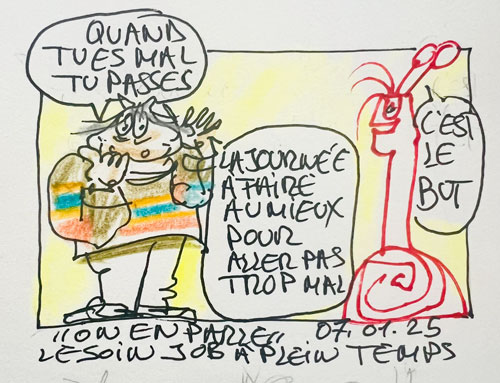 QUAND
TU ES MAL
TU PASSES
LA JOURNÉE
A FAIRE
AU MIEUX
POUR
ALLER PAS
TROP MAL
C'EST
LE
BUT
"ON EN PARLE" 07.01.25
LE SOIN JOB A PLEIN TEMPS